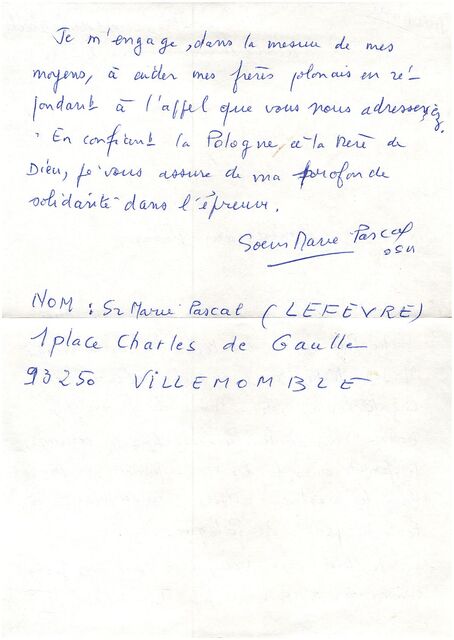 Je m'engage, dans la mesure de mes
moyens, à aider mes frères polonais en ré-
pondant à l'appel que vous nous adresseriez.
En confiant la Pologne à la Mère de
Dieu, je vous assure de ma profonde
solidarité dans l'épreuve.
Soeur Marie Pascal
osu
NOM : Sr Marie Pascal (LEFEVRE)
1 place Charles de Gaulle
93250 VILLEMOMBLE